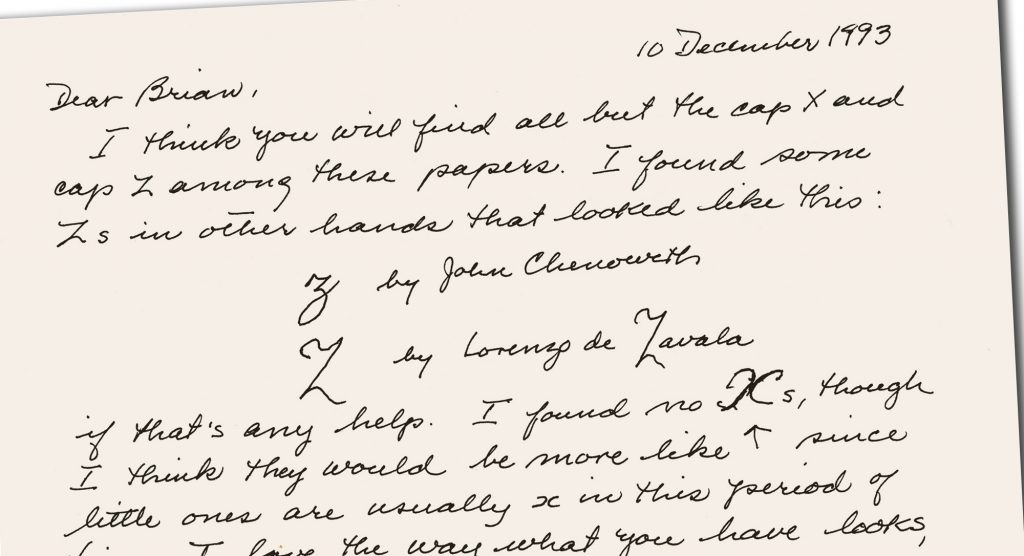 10 December 1993
Dear Brian,
I think you will find all but the cap X and
cap Z among these papers. I found some
Zs in other hands that looked like this:
Z by John Chenoweth
Z by Lorenzo de Zavala
if that's any help. I found no Xs, though
I think they would be more like ↑ since
little ones are usually x in this period of
I love the way what you have looks,